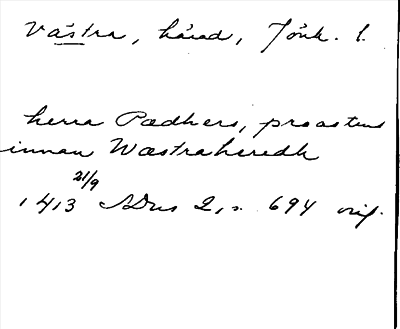 Västra, härad, Jönk. l.
herra Pædhers, proastens
innan Wæstrahæredh
21/9
1413 SDns 2, s. 694 orig.